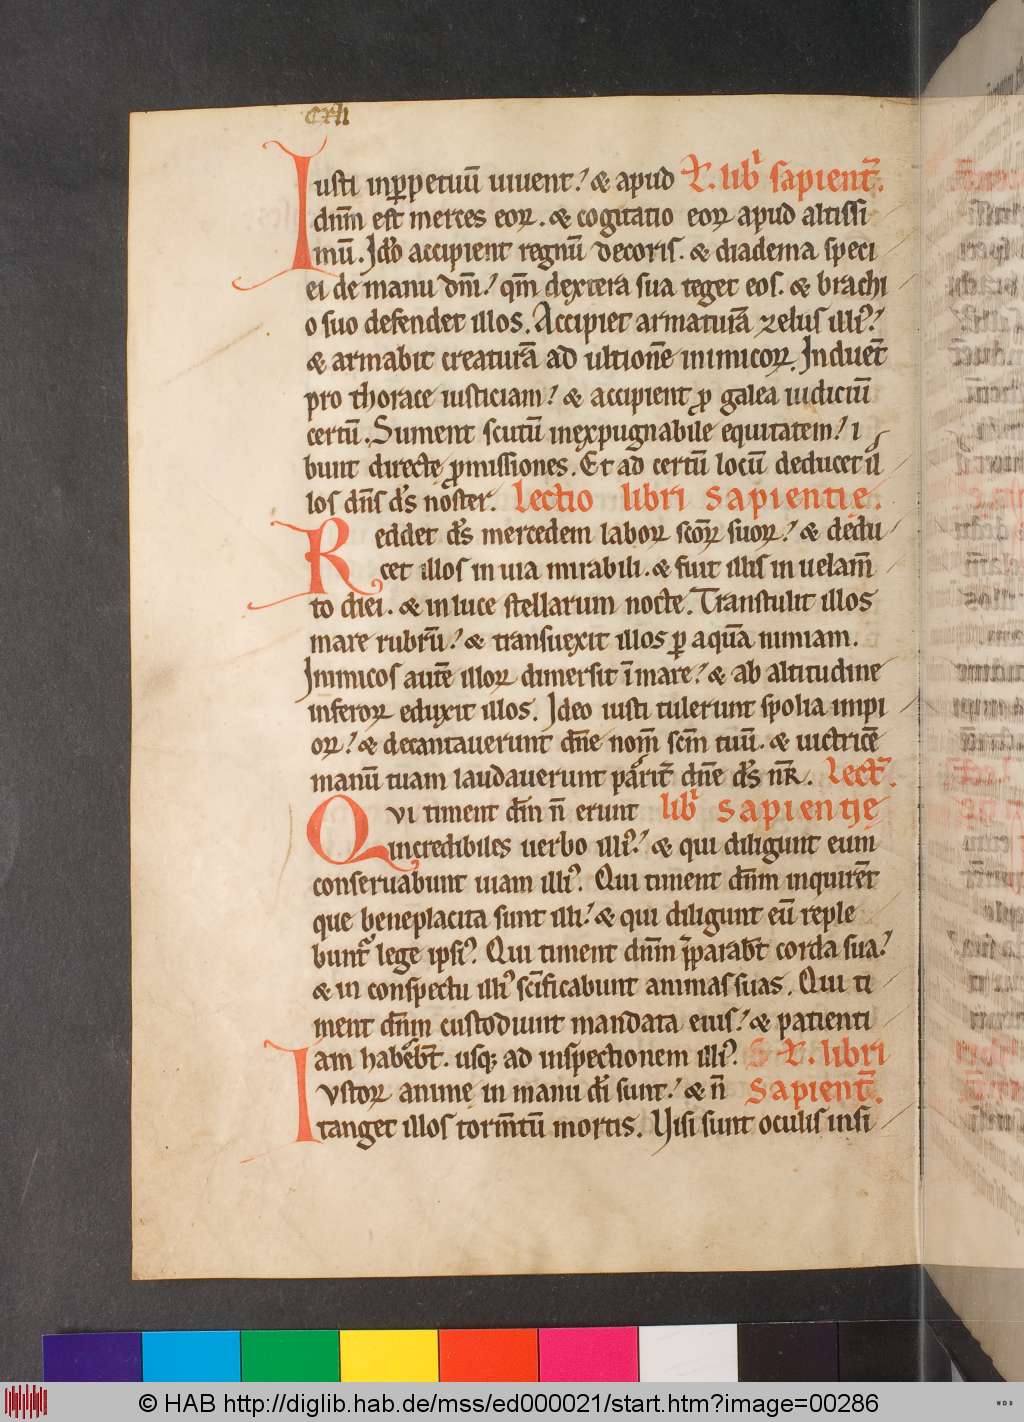 cxli
Iusti inp̱petuū uiuent. & apud L. lib̕ sapient̄.
dn̄m est merces eoꝝ. & cogitatio eoꝝ apud altissi
mū. Id̕o accipient regnū decoris. & diadema speci
ei de manu dn̄i. qm̄ dextera sua teget eos. & brachi
o suo defendet illos. Accipiet armaturā zelus illiꝰ.
& armabit creaturā ad ultionē inimicoꝝ. Induet̄
pro thorace iusticiam. & accipient ꝓ galea iudiciū
certū. Sument scutū inexpugnabile equitatem. i
bunt directe ꝓmissiones. Et ad certū locū deducet il
los dn̄s ds̄ noster. Lectio libri Sapientię.
Reddet ds̄ mercedem laboꝝ sco̅ꝝ suoꝝ. & dedu
cet illos in uia mirabili. & fuit illis in uelam̄
to diei. & in luce stellarum nocte. Transtulit illos
mare rubrū. & transuexit illos ꝑ aquā nimiam.
Inimicos autē illoꝝ dimersit ī mare. & ab altitudine
inferoꝝ eduxit illos. Ideo iusti tulerunt spolia impi
oꝝ. & decantauerunt dn̄e nom̄ scm̄ tuū. & uictricē
manū tuam laudauerunt parit̄ dn̄e ds̄ nr̄. Lect̄.
Qvi timent dn̄m n̄ erunt lib̕ Sapientię
incredibiles uerbo illiꝰ. & qui diligunt eum
conseruabunt uiam illiꝰ. Qui timent dn̄m inquirēt
que beneplacita sunt illi. & qui diligunt eū reple
bunt̕ lege ipsiꝰ. Qui timent dn̄m p̄parabt̄ corda sua.
& in conspectu illiꝰ sc̄ificabunt animas suas. Qui ti
ment dn̄m custodiunt mandata eius. & patienti
am habebt̄. usqꝫ ad inspectionem illiꝰ. L. libri
Ivstoꝝ animę in manu dī sunt. & n̄ Sapient̄.
tanget illos torm̄tū mortis. Uisi sunt oculis insi
© HAB http://diglib.hab.de/mss/ed000021/start.htm?image=00286